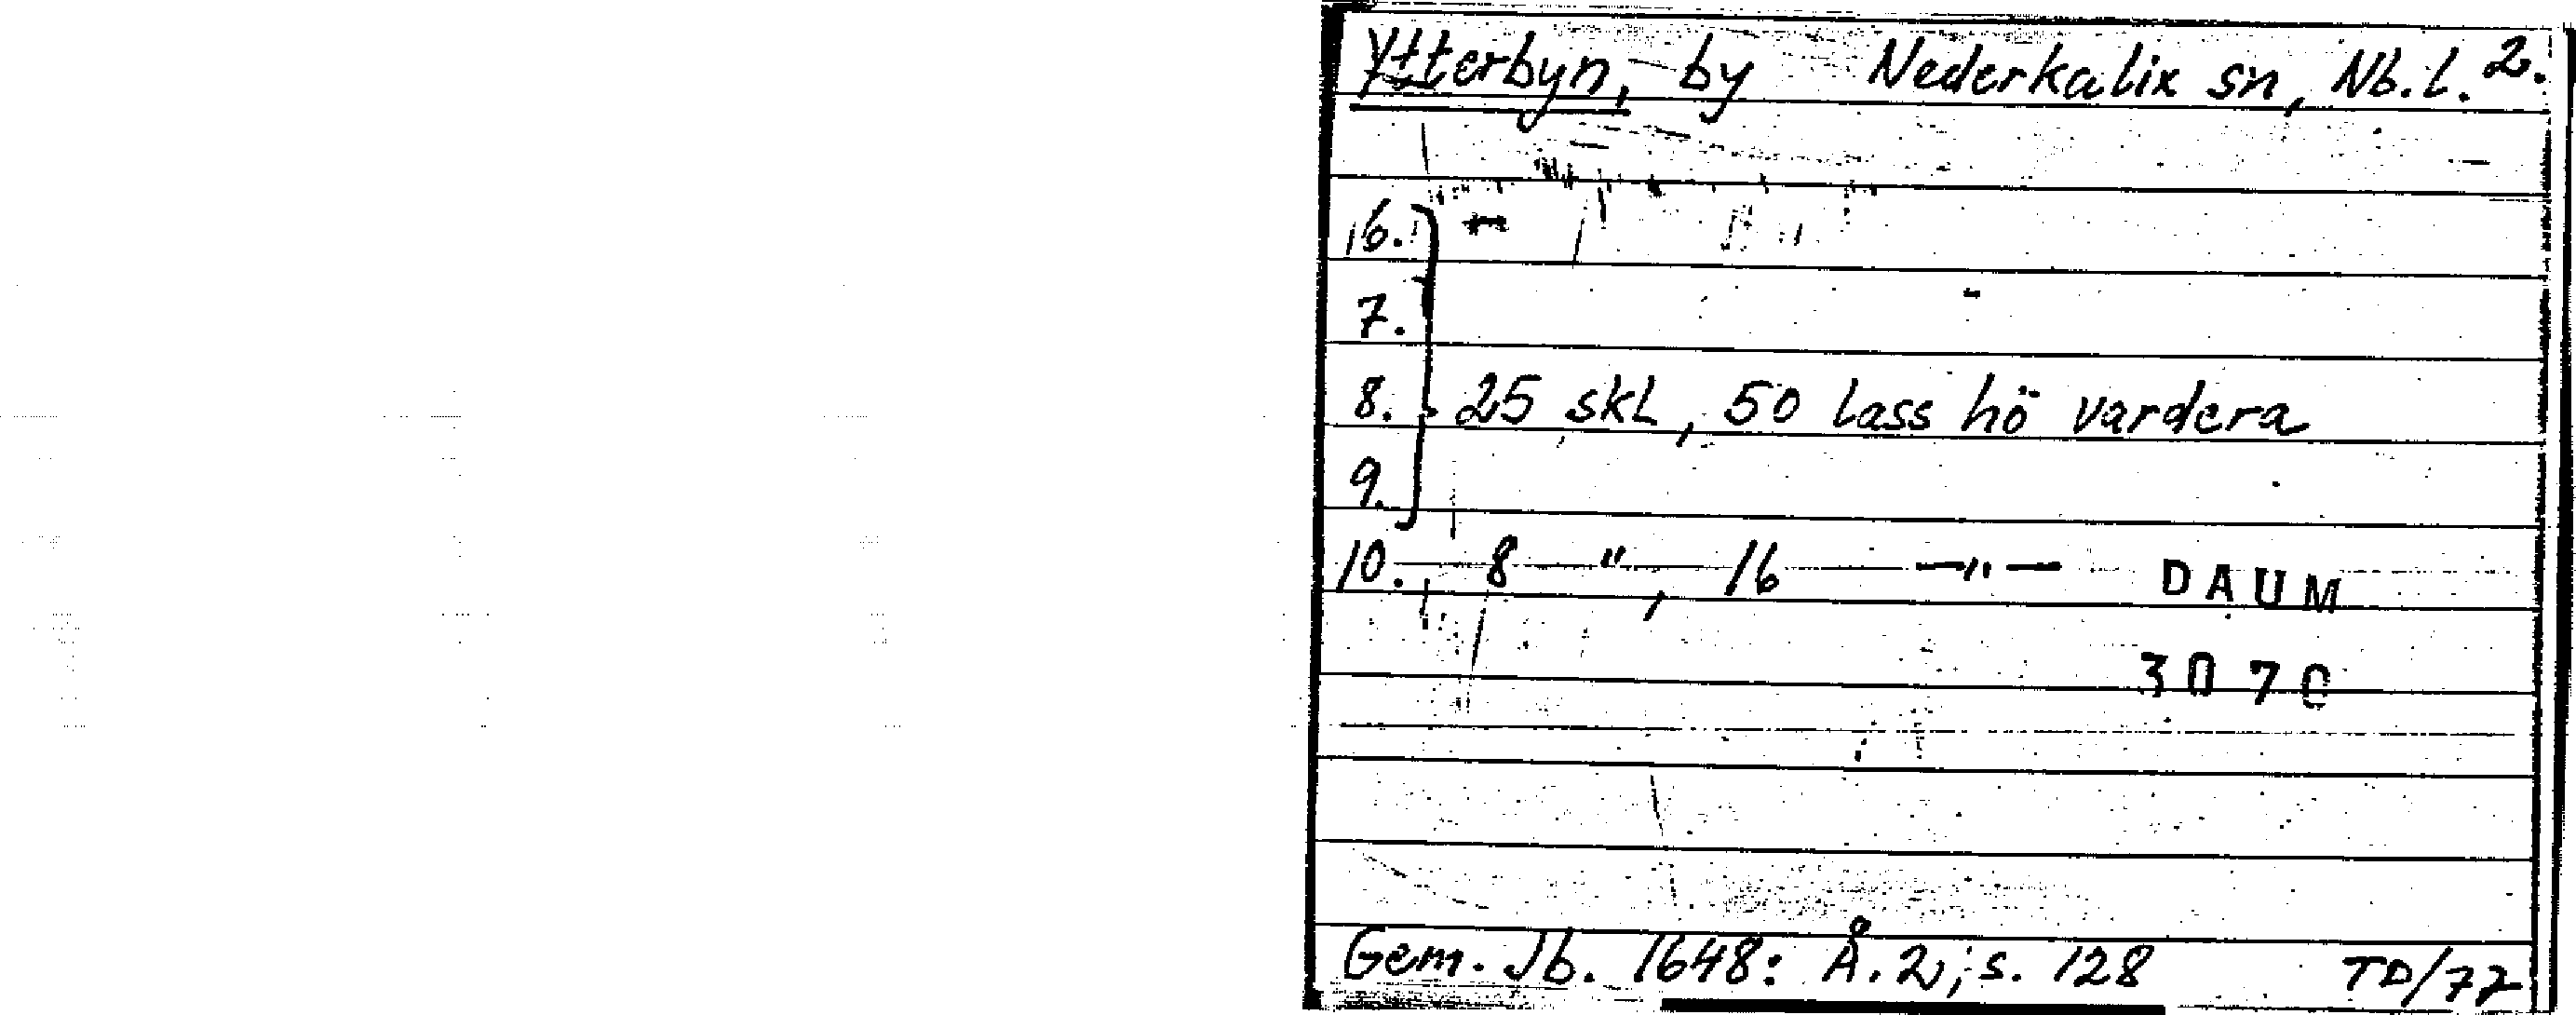 Ytterbyn, by Nederkalix sn, Nb.l. 2.
6.
7.
8. 25 skl, 50 lass hö vardera
9.
10. 8 ", 16 —"— DAUM
3070
Gem. Jb. 1648: Å.2; s. 128 TD/77